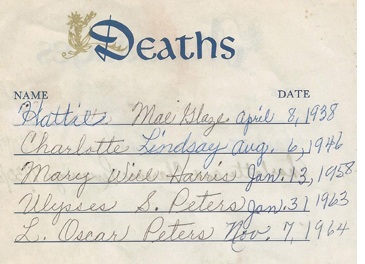 Deaths
NAME DATE
Hattie Mae Glaze April 8, 1938
Charlotte Lindsay Aug. 6, 1946
Mary Will Harris Jan. 13, 1958
Ulysses S. Peters Jan. 31 1963
L. Oscar Peters Nov. 7, 1964